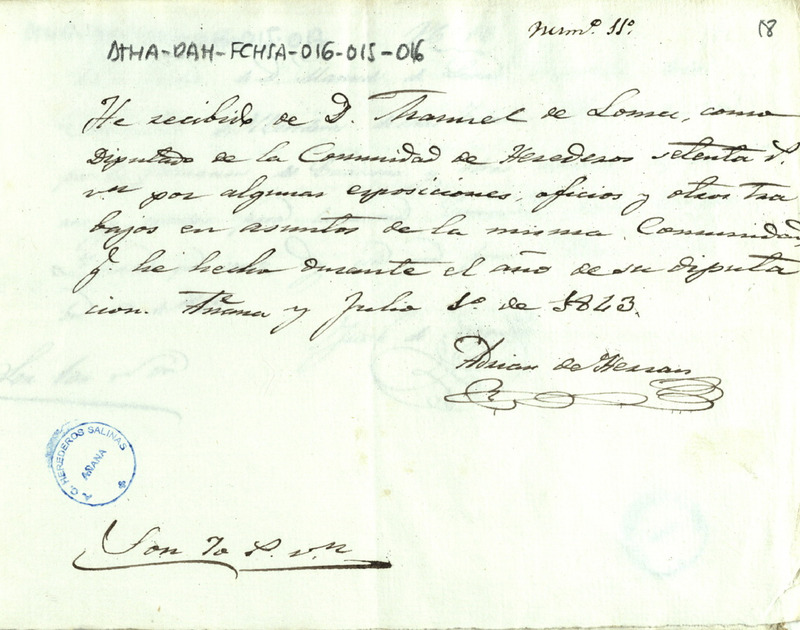 Numº. 11º.
18
ATHA-DAH-FCHSA-016-015-016
He recibido de D. Manuel de Loma, como
Diputado de la Comunidad de Herederos setenta r.s
v.n por algunas exposiciones, oficios y otros tra
bajos en asuntos de la misma Comunidad
q. he hecho durante el año de su diputa
cion. Añana y Julio 1º de 1843.
Adrian de Herran
A. C. HEREDEROS SALINAS
AÑANA
Son 70 r.s v.n